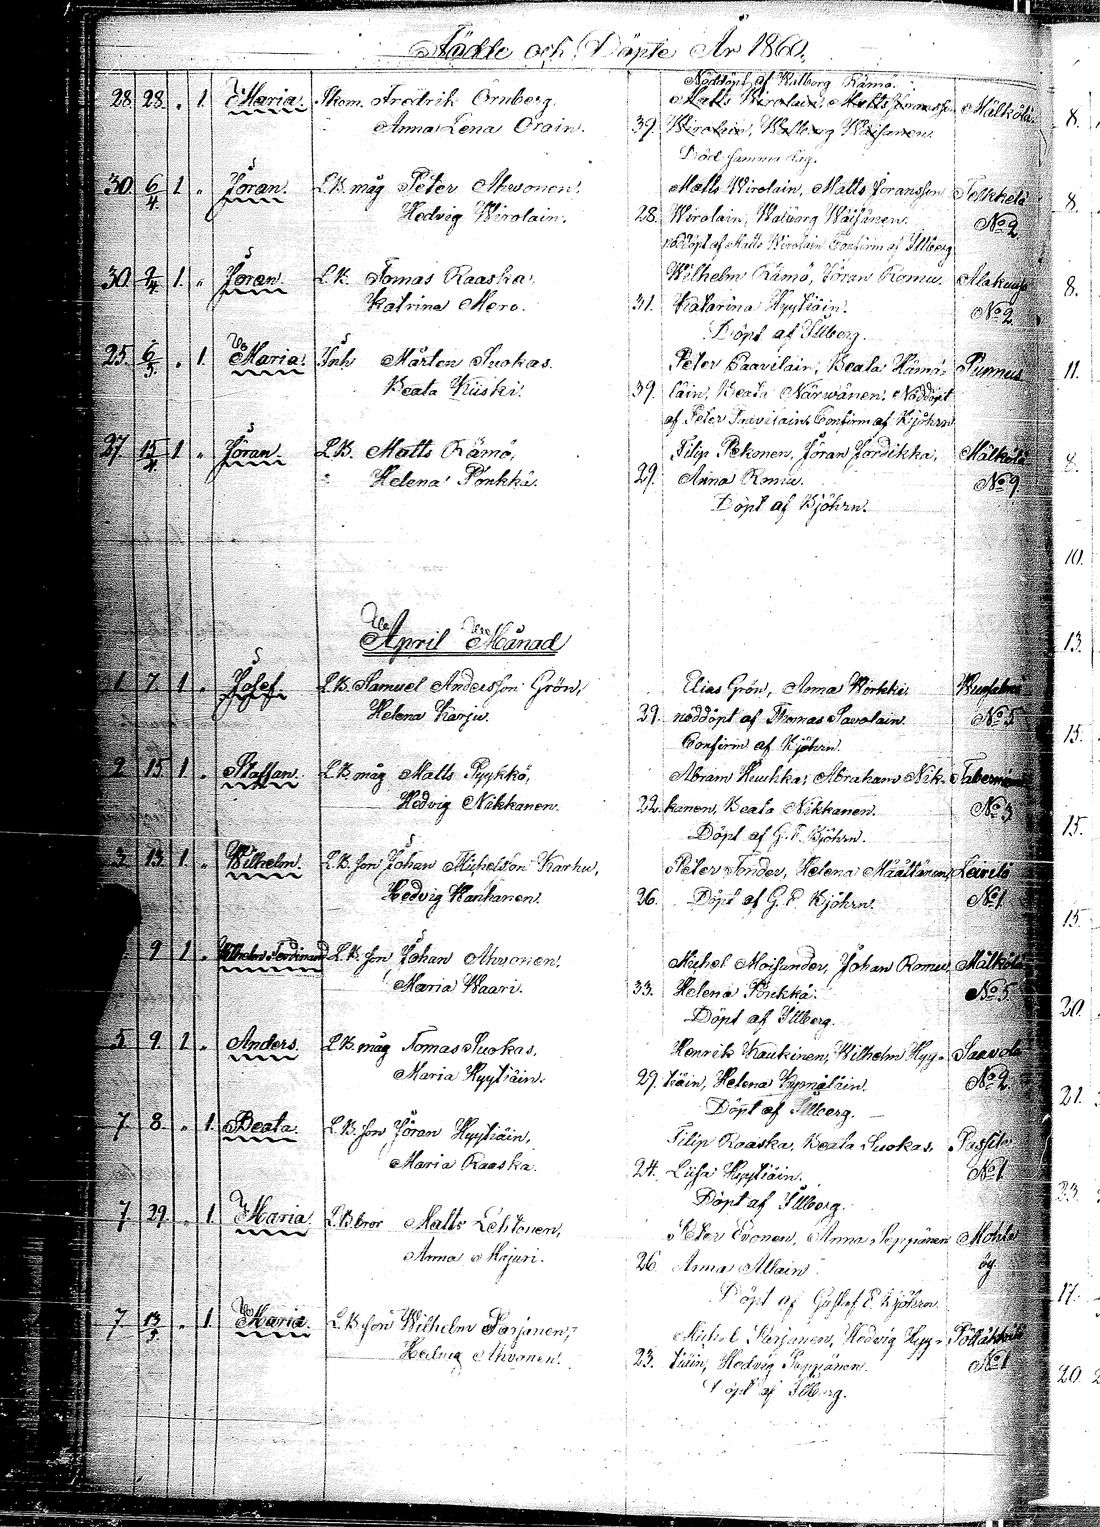 Födde och Döpte År 1860.
Nöddöpt af Walborg Rämö.
28. 28. „ 1. Maria. Skom. Fredrik Örnberg. Matts Wirolain, Matts Göransson Mälkölä
Anna Lena Orain. 39. Wirolain, Walborg Wäisänen.
Död samma dag.
30. 6/4. 1 „ Jöran. L.B. måg Peter Ahvonen. Matts Wirolain, Matts Göransson
Hedvig Wirolain. 28. Wirolain, Walborg Wäisänen. No 2.
nöddöpt af Matts Wirolain Confirm. af Illberg
30. 2/4 1. „ Jöran. L.B. Tomas Raaska. Wilhelm Rämö, Jöran Romu
Katrina Mero. 31. Katarina Hyytiäin. No 2
Döpt af Illberg.
25. 6/5. „ 1. Maria. Inh. Mårten Suokas. Peter Paavilain, Beata Hämä- Punnus 11.
Beata Kiiski. 39. läin, Beata Närwänen. Nöddöpt
af Peter Paavilain, Confirm af Kjöhrn
27. 15/4 1 „ Jöran. L.B. Matts Rämö, Filip Pekonen, Jöran Jordikka, Mälkölä 8.
Helena Pönkkä. 29. Anna Romu. No 9
Döpt af Kjöhrn.
April Månad
1. 7. 1 „ Josef. L.B. Samuel Andersson Grön, Elias Grön, Anna Workki.
Helena Karju. 39. nöddöpt af Thomas Savolain. No 5
Confirm af Kjöhrn.
2 15 1 „ Staffan. L.B. måg Matts Pyykkö, Abram Huuhka, Abraham Nik-
Hedvig Nikkanen. 22. kanen, Beata Nikkanen. No 3
Döpt af G. E. Kjöhrn.
3 13 1. „ Wilhelm. L.B. son Johan Michelson Karhu, Peter Tonder, Helena Määttänen, Leinilä
Hedvig Hankanen. 36. Döpt af G. E. Kjöhrn. No 1.
9 1 „ Wilhelm Ferdinand L.B. son Johan Ahvonen. Michel Moisander, Johan Romu Mälkölä
Maria Waari. 33. Helena Pönkkä. No 5
Döpt af Illberg.
5 9. 1 „ Anders. L.B. måg Tomas Suokas. Henrik Kaukinen, Wilhelm Hyy-
Maria Hyytiäin. 29. tiäin, Helena Kymäläin. No 2.
Döpt af Illberg.
7. 8. „ 1. Beata. L.B. son Jöran Hyytiäin, Filip Raaska, Beata Suokas,
Maria Raaska. 24. Lisa Hyytiäin. No 1
Döpt af Illberg.
7. 29. „ 1. Maria. L.B. bror Matts Lehtonen, Peter Evonen, Anna Seppänen Mohla
Anna Majuri. 26. Anna Allain by.
Döpt af Gustaf E. Kjöhrn
7. 13/5. „ 1. Maria. L.B. son Wilhelm Karjanen, Michel Karjanen, Hedvig Hyy-
Hedvig Ahvonen. 23. tiäin, Hedvig Seppänen. No 1
Döpt af Illberg.